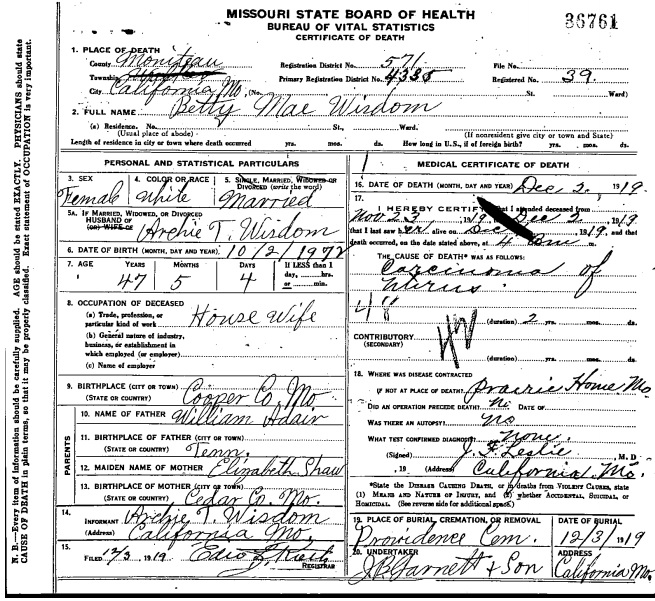 MISSOURI STATE BOARD OF HEALTH
BUREAU OF VITAL STATISTICS
CERTIFICATE OF DEATH
36761
1. PLACE OF DEATH
County Moniteau Registration District No. 571 File No.
Township Primary Registration District No. 4335 Registered No. 39
City California Mo. (No. St. Ward)
2. FULL NAME Betty Mae Wisdom
(a) Residence. No. St., Ward.
(Usual place of abode) (If nonresident give city or town and State)
Length of residence in city or town where death occurred yrs. mos. ds. How long in U.S., if of foreign birth? yrs. mos. ds.
PERSONAL AND STATISTICAL PARTICULARS
3. SEX 4. COLOR OR RACE 5. SINGLE, MARRIED, WIDOWED OR DIVORCED (write the word)
Female White Married
5A. IF MARRIED, WIDOWED, OR DIVORCED
HUSBAND OF
(OR) WIFE OF Archie T. Wisdom
6. DATE OF BIRTH (MONTH, DAY AND YEAR) 10/2/1972
7. AGE YEARS MONTHS DAYS If LESS than 1 day, hrs. or min.
47 5 4
8. OCCUPATION OF DECEASED
(a) Trade, profession, or
particular kind of work House Wife
(b) General nature of industry,
business, or establishment in
which employed (or employer)
(c) Name of employer
9. BIRTHPLACE (CITY OR TOWN) Cooper Co. Mo
(STATE OR COUNTRY)
PARENTS
10. NAME OF FATHER William Adair
11. BIRTHPLACE OF FATHER (CITY OR TOWN)
(STATE OR COUNTRY) Tenn.
12. MAIDEN NAME OF MOTHER Elizabeth Shaw
13. BIRTHPLACE OF MOTHER (CITY OR TOWN)
(STATE OR COUNTRY) Cedar Co. Mo.
14.
INFORMANT Archie T. Wisdom
(Address) California Mo.
15.
FILED 12/3 1919
REGISTRAR
MEDICAL CERTIFICATE OF DEATH
16. DATE OF DEATH (MONTH, DAY AND YEAR) Dec 2. 1919.
17.
I HEREBY CERTIFY, that I attended deceased from
Nov 23, 1919, Dec 2, 1919
that I last saw her alive on Dec 1919, and that
death occurred, on the date stated above, at 4 m.
THE CAUSE OF DEATH* WAS AS FOLLOWS:
Carcinoma of
Uterus
48
(duration) 2 yrs. mos. ds.
CONTRIBUTORY
(SECONDARY)
(duration) yrs. mos. ds.
18. WHERE WAS DISEASE CONTRACTED
IF NOT AT PLACE OF DEATH? Prairie Home Mo
DID AN OPERATION PRECEDE DEATH? No DATE OF
WAS THERE AN AUTOPSY? No
WHAT TEST CONFIRMED DIAGNOSIS? None.
(Signed) J. F. Leslie, M. D
, 19 (Address) California, Mo.
*State the DISEASE CAUSING DEATH, or in deaths from VIOLENT CAUSES, state
(1) MEANS AND NATURE OF INJURY, and (2) whether ACCIDENTAL, SUICIDAL, or
HOMICIDAL. (See reverse side for additional space.)
19. PLACE OF BURIAL, CREMATION, OR REMOVAL DATE OF BURIAL
Providence Cem. 12/3/1919
20. UNDERTAKER ADDRESS
J. B. Garnett + Son California Mo.
N. B.—Every item of information should be carefully supplied. AGE should be stated EXACTLY. PHYSICIANS should state
CAUSE OF DEATH in plain terms, so that it may be properly classified. Exact statement of OCCUPATION is very important.